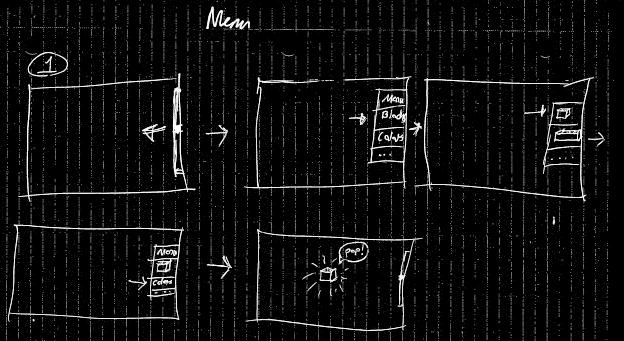 Menu
1
Menu
Blocks
Colors
...
...
Menu
Colors
...
pop!